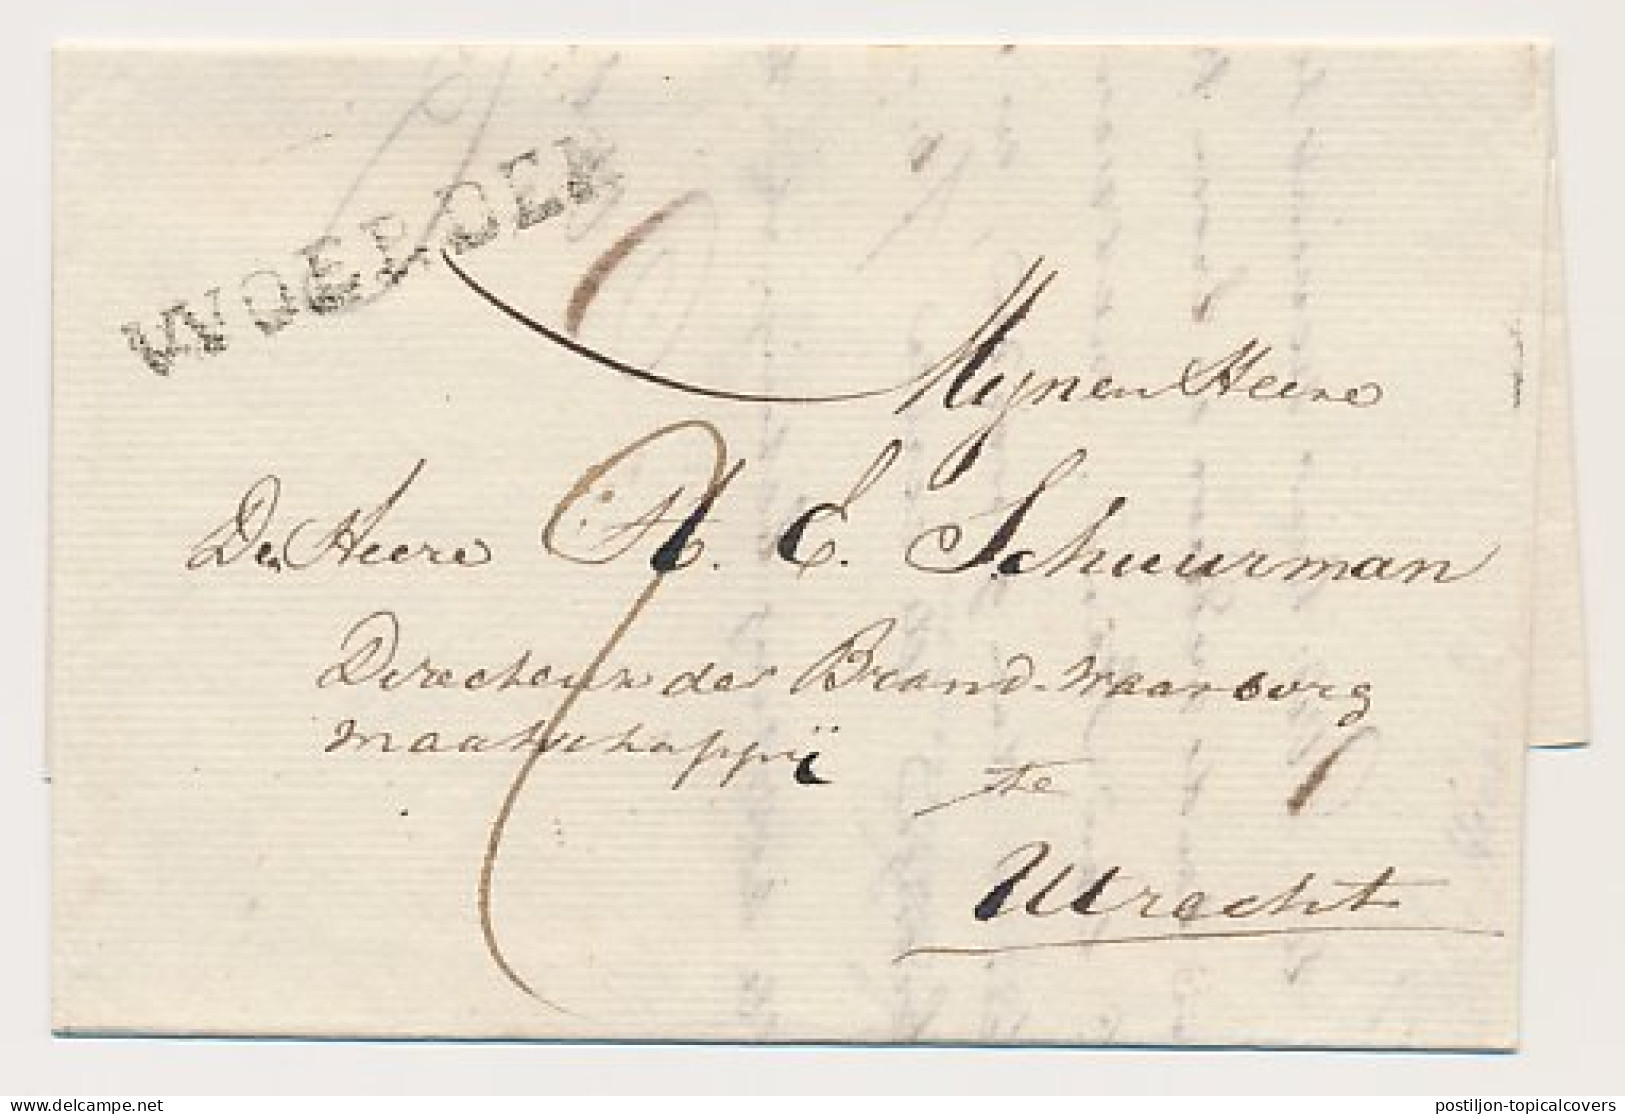 WOERDEN
Mynen Heere
Den Heere N. E. Schuurman
Directeur der Brand-Waarborg
maatschappÿ
te
Utrecht
delcampe.net
postiljon-topicalcovers